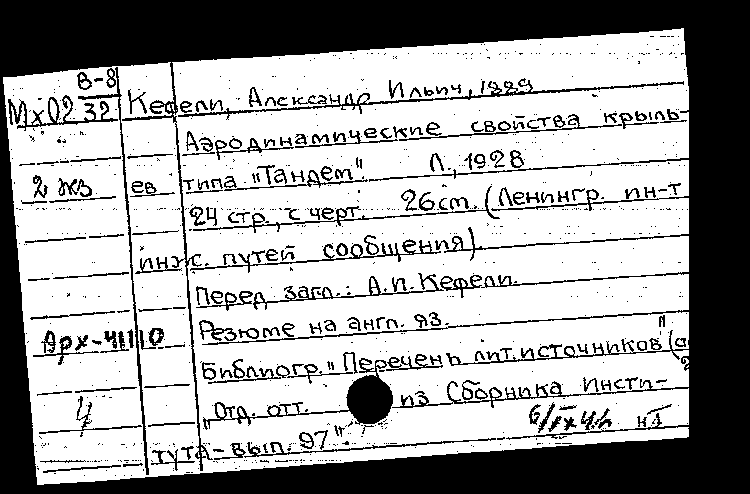 В-8
Мх02 32 Кефели, Александр Ильич, 1889
Аэродинамические свойства крыль-
2 экз ев типа "Тандем" Л., 1928
24 стр., с черт. 26 cm. (Ленингр. ин-т
инж. путей сообщения).
Перед загл.: А.И. Кефели.
Арх-41110 Резюме на англ. яз.
Библиогр. "Перечень лит. источников" (
4 "Отд. отт. из Сборника Инсти-
тута - вып. 97".
6/IX 41 г. нл